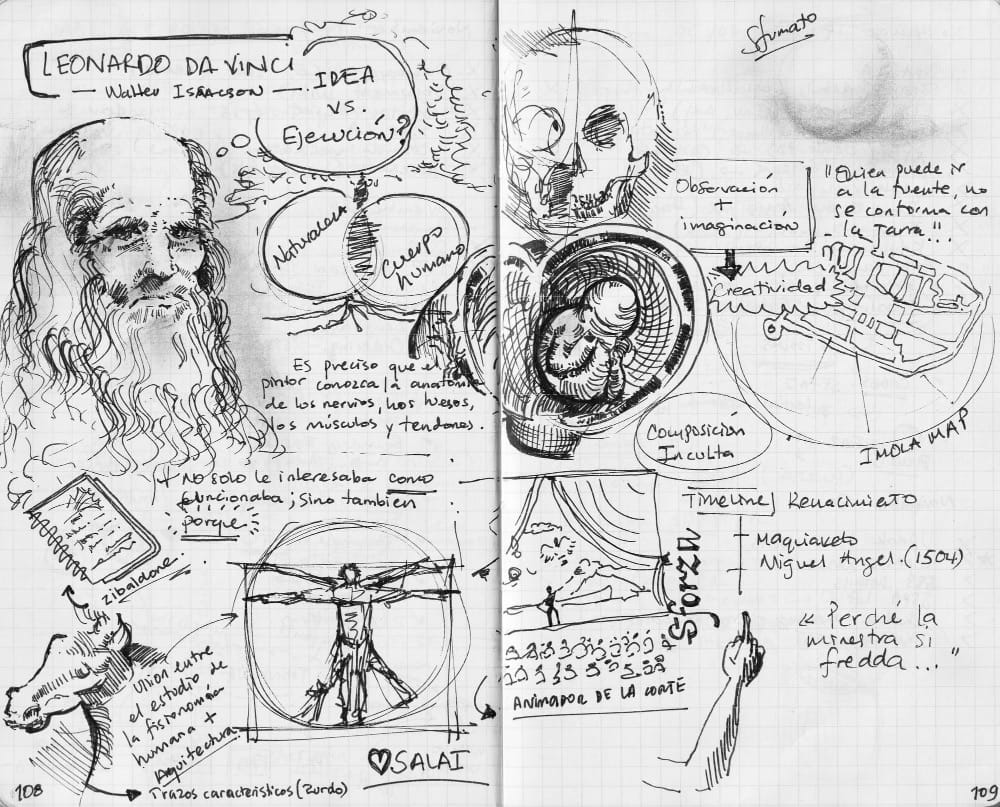 LEONARDO DA VINCI
— Walter Isaacson —
IDEA
vs.
Ejecución?
Naturaleza
Cuerpo
humano
Es preciso que el
pintor conozca la anatomia
de los nervios, los huesos,
los músculos y tendones.
+ No solo le interesaba como
funcionaba; Sino tambien
porque
zibaldone
Union entre
el estudio de
la fisionomía
humana +
Arquitectura
♡SALAI
Trazos caracteristicos (Zurdo)
108
Sfumato
Observación
+
imaginación
Creatividad
"Quien puede ir
a la fuente, no
se conforma con
la Jarra..."
IMOLA MAP
Composición
Inculta
Timeline Renacimiento
Maquiavelo
Miguel Angel. (1504)
Sforza
ANIMADOR DE LA CORTE
"Perché la
minestra si
fredda..."
109